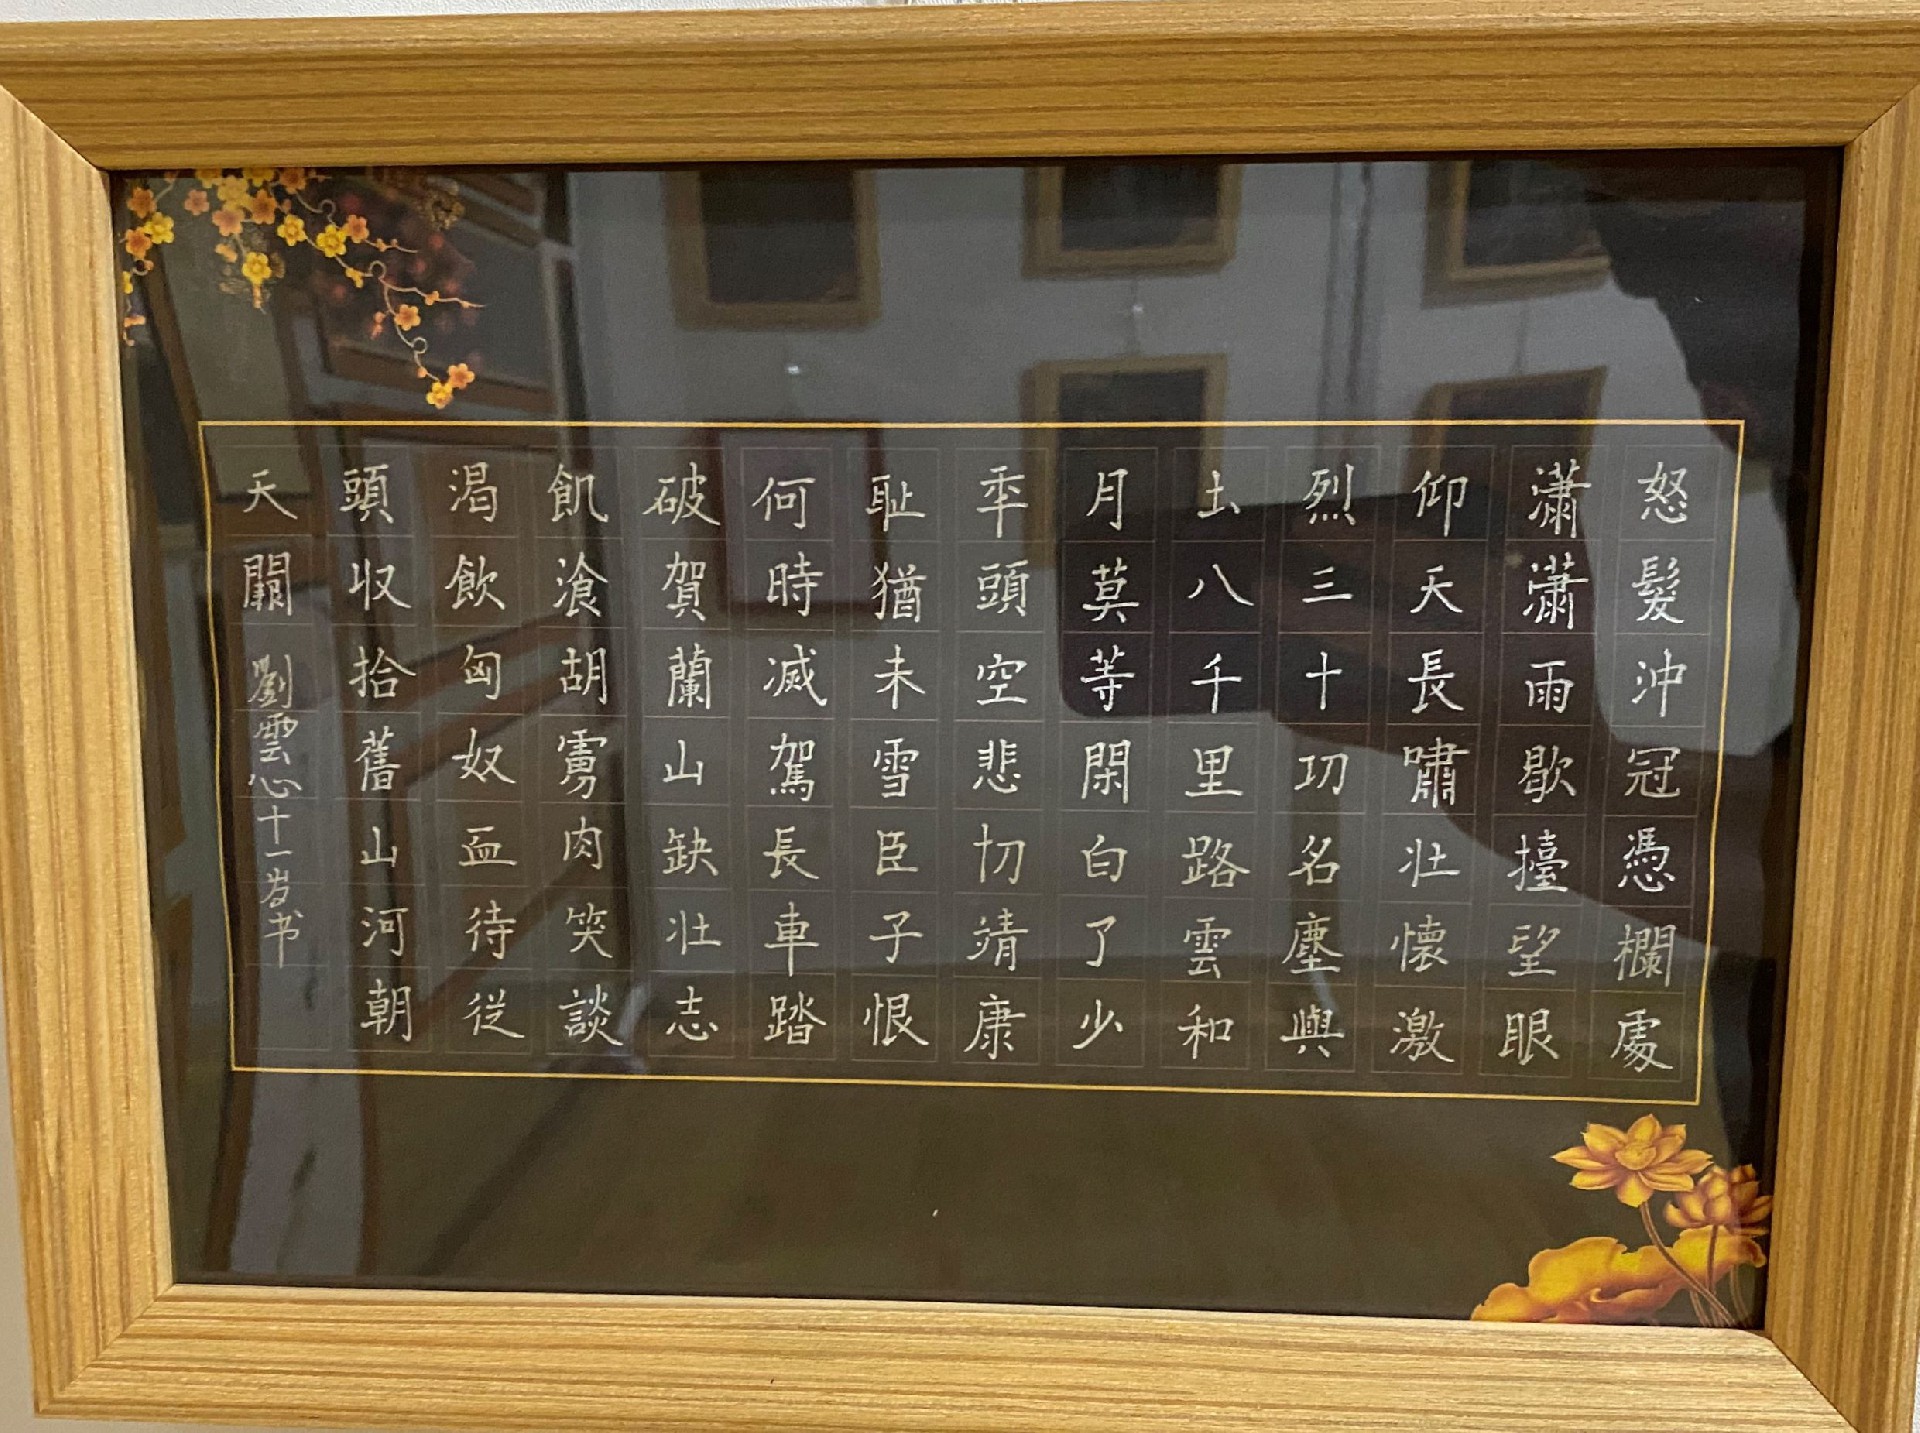 怒髮沖冠憑欄處
瀟瀟雨歇擡望眼
仰天長嘯壯懷激
烈三十功名塵與
土八千里路雲和
月莫等閑白了少
年頭空悲切靖康
恥猶未雪臣子恨
何時滅駕長車踏
破賀蘭山缺壯志
飢飡胡虜肉笑談
渴飲匈奴血待從
頭收拾舊山河朝
天闕 劉雲心十一岁书